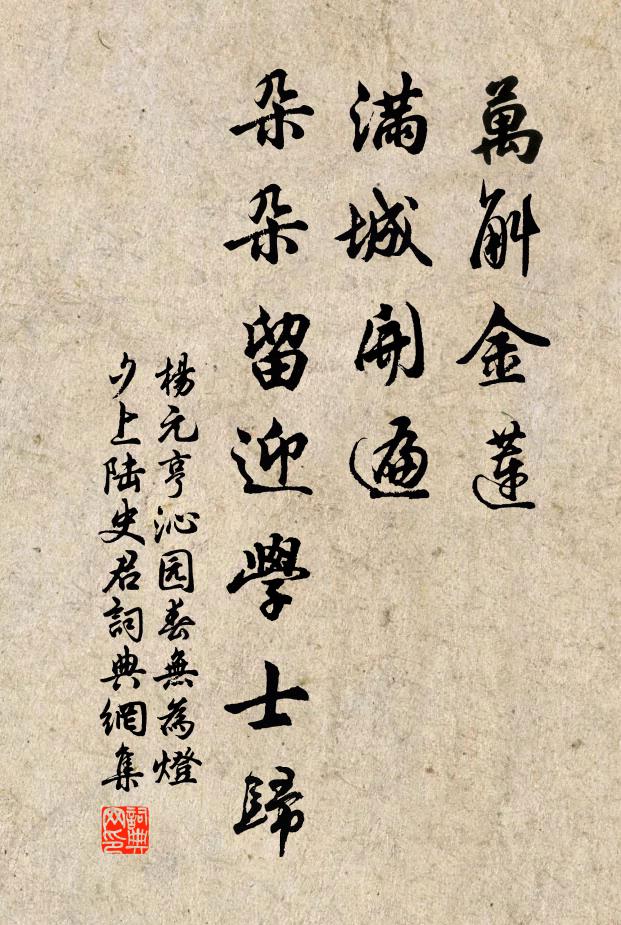 萬斛金蓮
滿城開遍
朵朵留迎學士歸
楊元亨沁园春無為燈
夕上陆史君詞典網集
詞典
网印